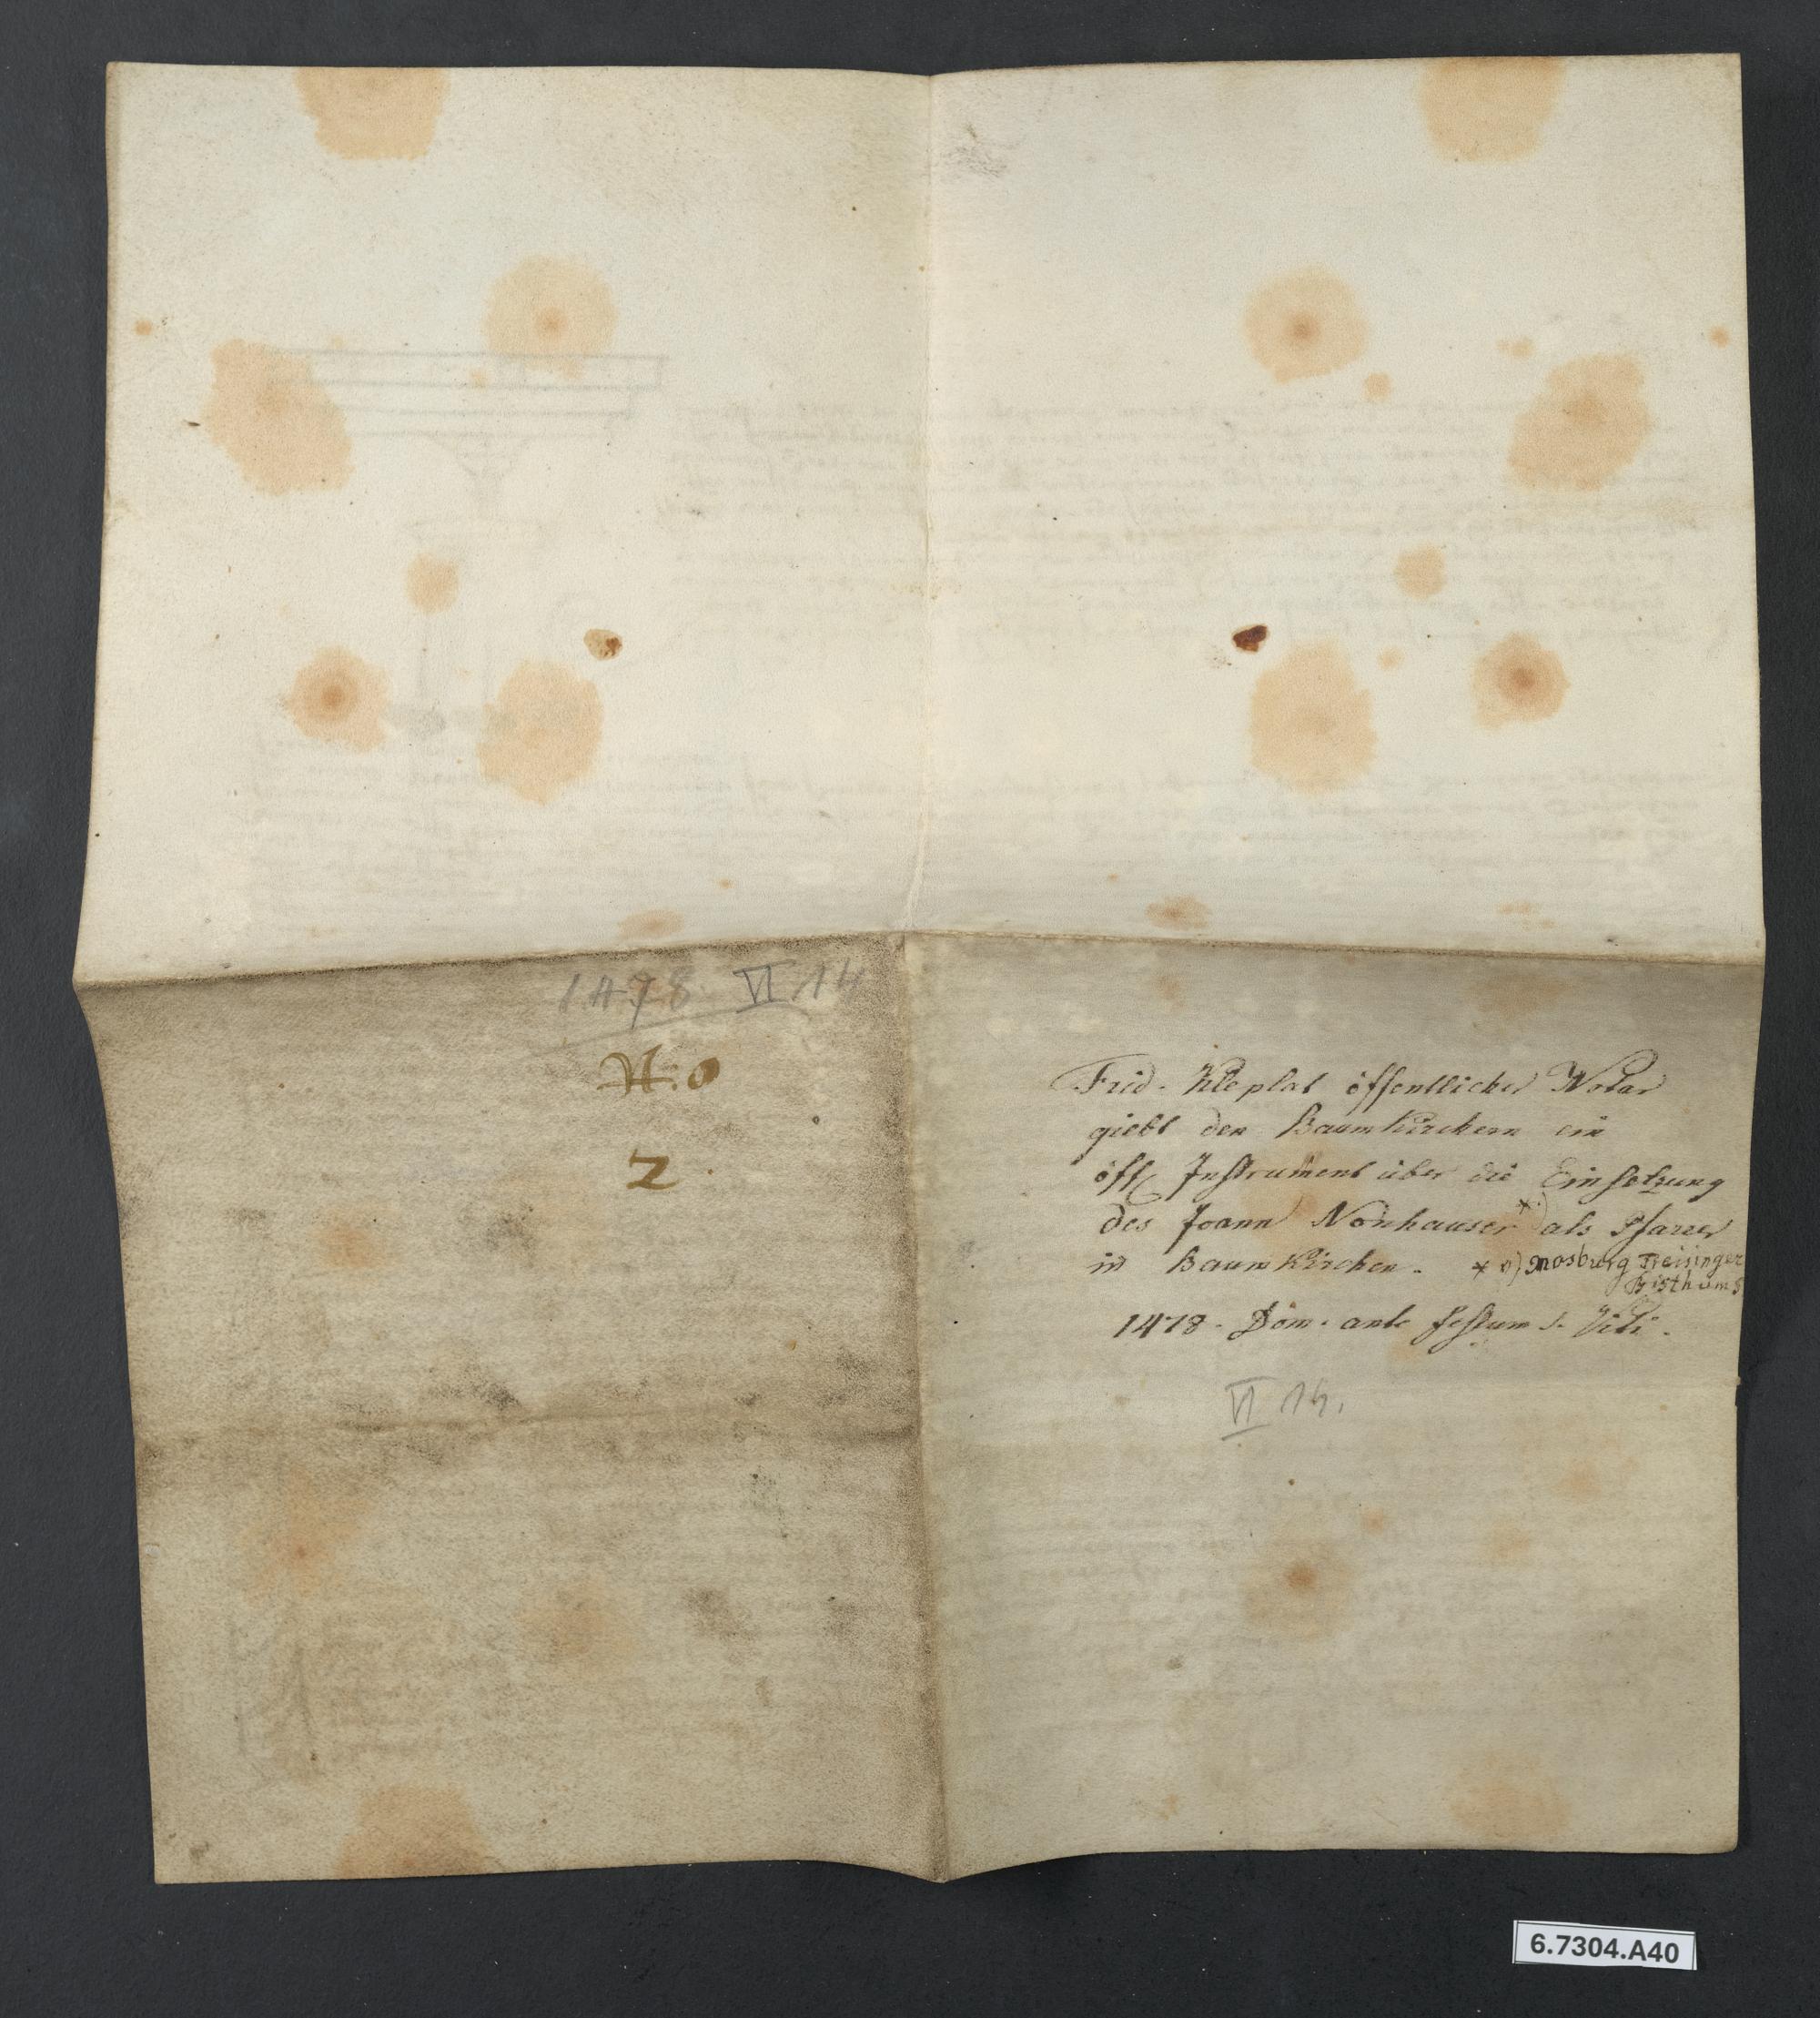 1478. VI 14
N:o
2.
Frid. Kleplat öffentlicher Notar
giebt den Baumkirchern ein
öff. Instrument über die Einsetzung
des Joann Nonhauser *) als Pfarrer
in Baumkirchen. * v) Mosburg Freisinger
Bisthums
1478. Dom. ante festum S. Viti.
VI 14.
6.7304.A40